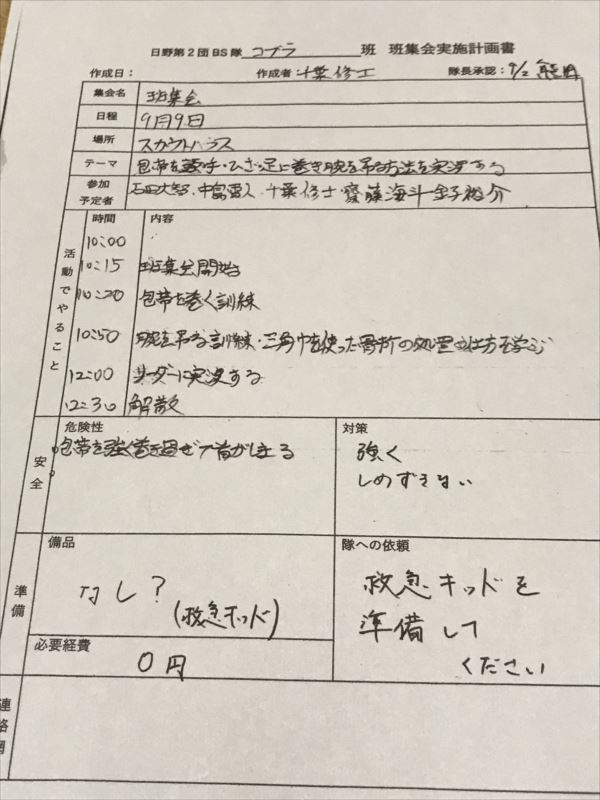 日野第2団BS隊 コブラ 班 班集会実施計画書
作成日： 作成者：千葉修士 隊長承認：9/2
集会名 班集会
日程 9月9日
場所 スカウトハウス
テーマ 包帯を頭・手・ひざ・足に巻き腕を吊る方法を実演する
参加予定者 石田大智、中富雷人、千葉修士 齋藤海斗 金子裕介
活動でやること
時間 内容
10:00
10:15 班集会開始
10:20 包帯を巻く訓練
10:50 腕を吊る訓練・三角巾を使った骨折の処置の仕方を学ぶ
12:00 リーダーに実演する
12:30 解散
安全
危険性
包帯を強く巻き過ぎて首がしまる
対策
強く
しめすぎない
準備
備品
なし？
（救急キッド）
隊への依頼
救急キッドを
準備して
ください
必要経費
0円
連絡網